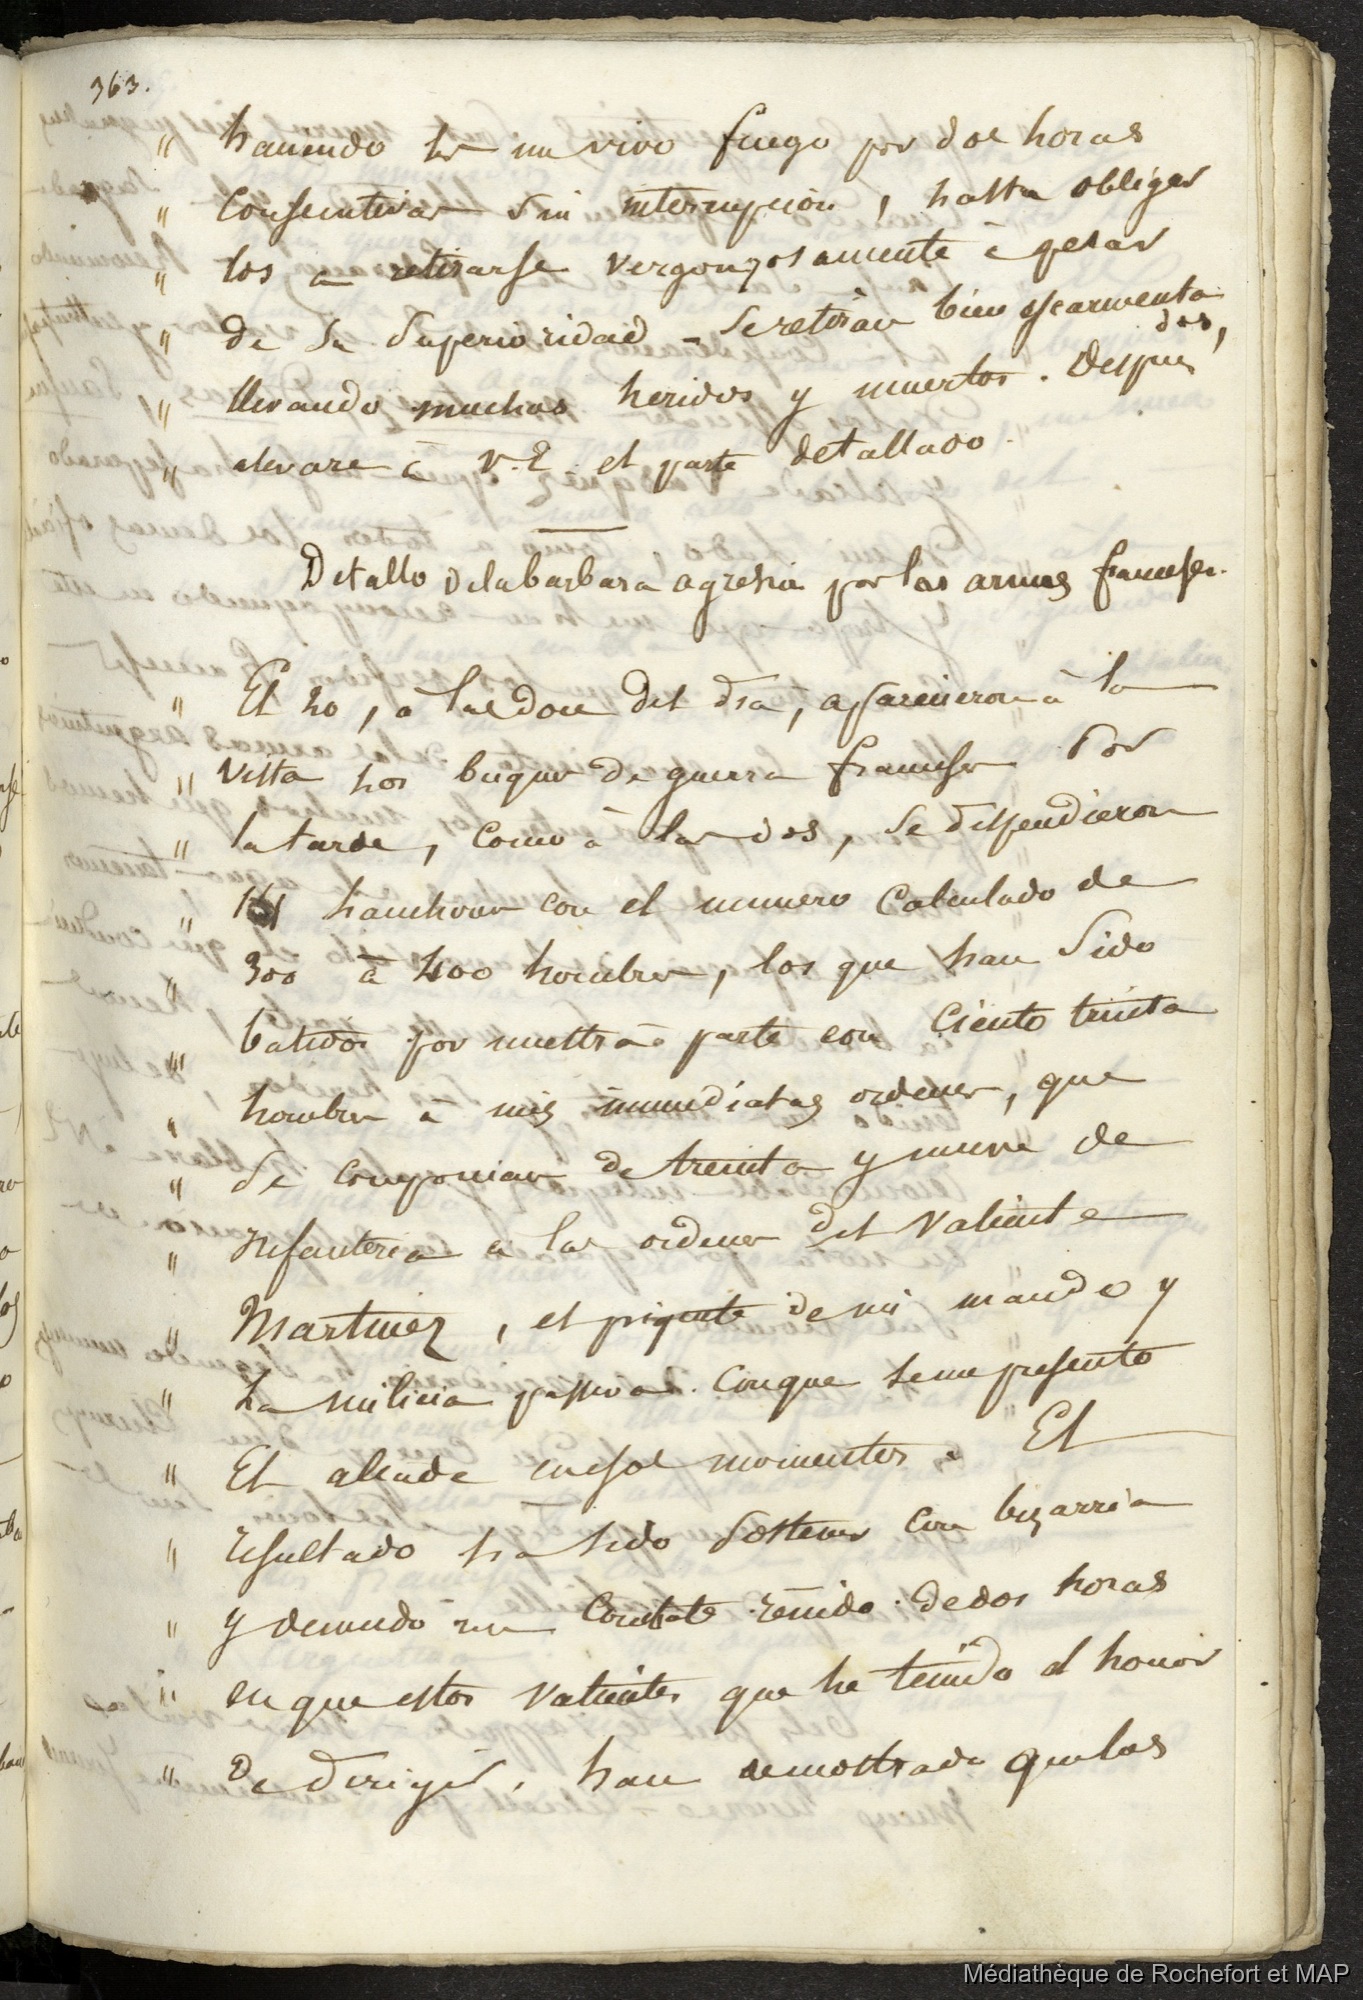 363.
" haciendo les un vivo fuego por dos horas
" Consecutivas sin interrupcion, hasta obligar
" los a retirarse vergonzosamente à pesar
" de su superioridad - Se retiran bien escarmenta
dos,
" llevando muchos heridos y muertos. Despues
" elevare à V.E. el parte detallado.
Detallo dela barbara agresia por las armas francesas.
" El 20, a las doce del dia, aparecieron à la
" vista los buques de guerra franceses Por
" la tarde, como à las dos, se desprendieron
" lanchones con el numero calculado de
" 300 à 400 hombres, los que han sido
" batidos por nuestra parte con ciento treinta
" hombres à mis inmediatas ordenes, que
" se componian de treinta y nueve de
" infanteria a las ordenes del valiente
" Martinez, el piquete de mi mando y
" La milicia passiva con que se me presento
" El alcade en esos momentos. El
" resultado ha sido sostener con bizarria
" y denuedo un combate renido de dos horas
" en que estos valientes que he tenido el honor
" De dirigir, han demostrado que las
Médiathèque de Rochefort et MAP